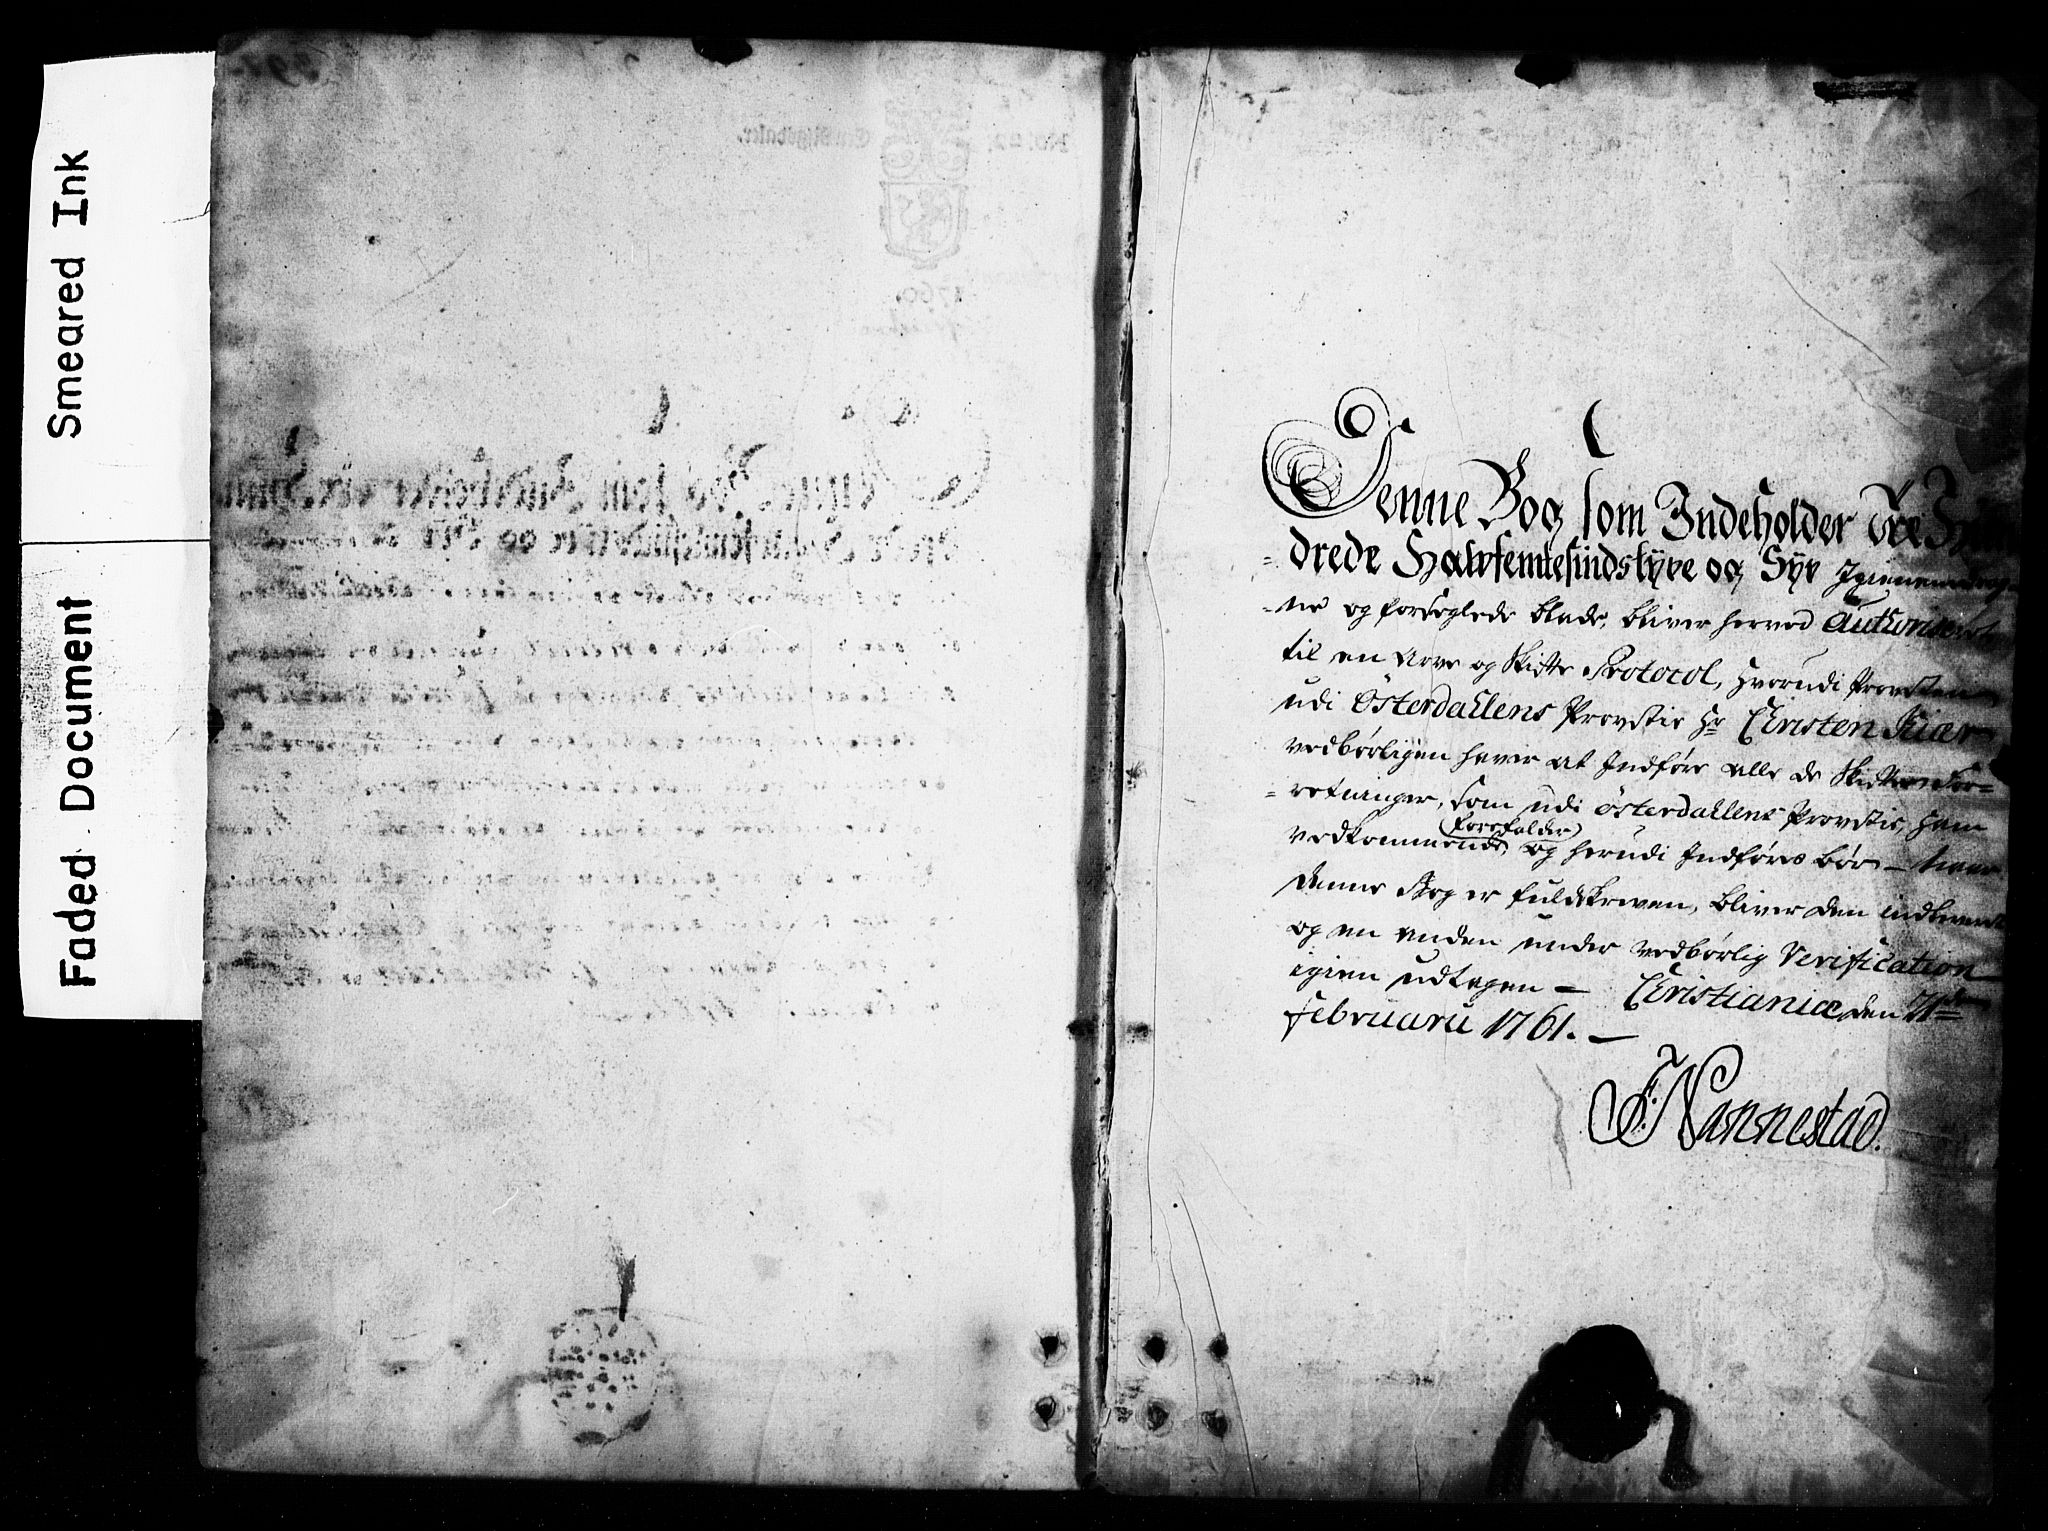 Smeared Ink
Faded Document
Denne Bog som Indeholder Tre Hun
drede Halvfemtesindstyve og Syv Igienemdrag-
ne og forseglede blade, bliver herved Authoriseret
til en Arve og Skifte Protocol, hvorudi Provsten
udi Österdahlens Provstie Hr Christen Kiær
vedbørligen haver at Indføre alle de Skifters For=
retninger, som udi Österdahlens Provstie, ham
vedkommende, (forefalder) og herudi Indføres bør — Naar
denne Bog er fuldskreven, bliver den indleveret
og en anden under vedbørlig Verification
igien udtagen — Christiania den 21de
Februarii 1761. —
F. Nannestad.
1760